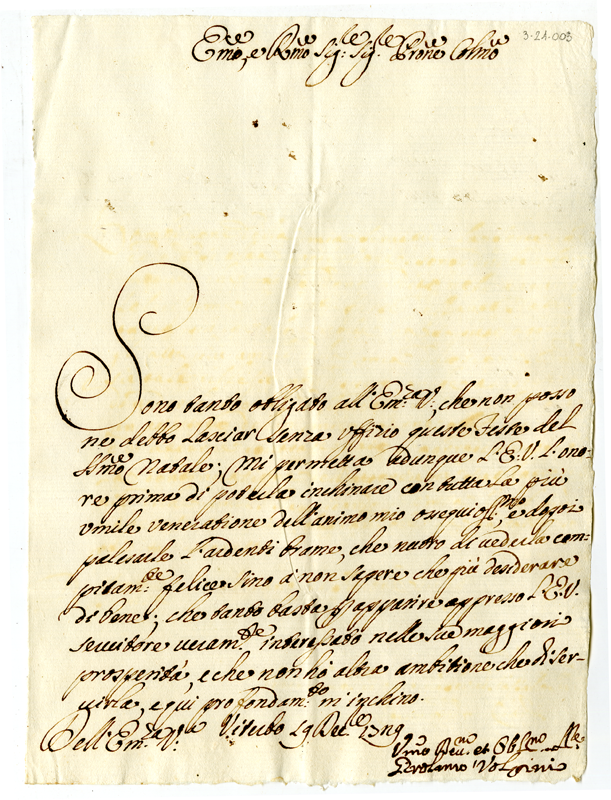 3-21-003
Em.e, e Rmo Sig.re Sig.re Prone Colmo
Sono tanto obligato all'Em.za V. che non posso
ne debbo lasciar senza uffizio queste Feste del
SSmo Natale; Mi permetta adunque l'E.V. l'ono-
re prima di poterla inchinare con tutta la più
umile veneratione dell'animo mio ossequioss.mo, e doppoi
palesarle l'ardenti brame, che nutro di vederla com-
pitam.te felice sino à non sapere che più desiderare
di bene; che tanto basta p apparire appresso l'E.V.
servitore veram.te interessato nelle sue maggiori
prosperità, e che non hò altra ambitione che di ser-
virla, e qui profondam.te m'inchino.
Dell'Em.za V.ra Viterbo 19 Dec.e
Vmo Deu.mo et Obl.mo
Girolamo